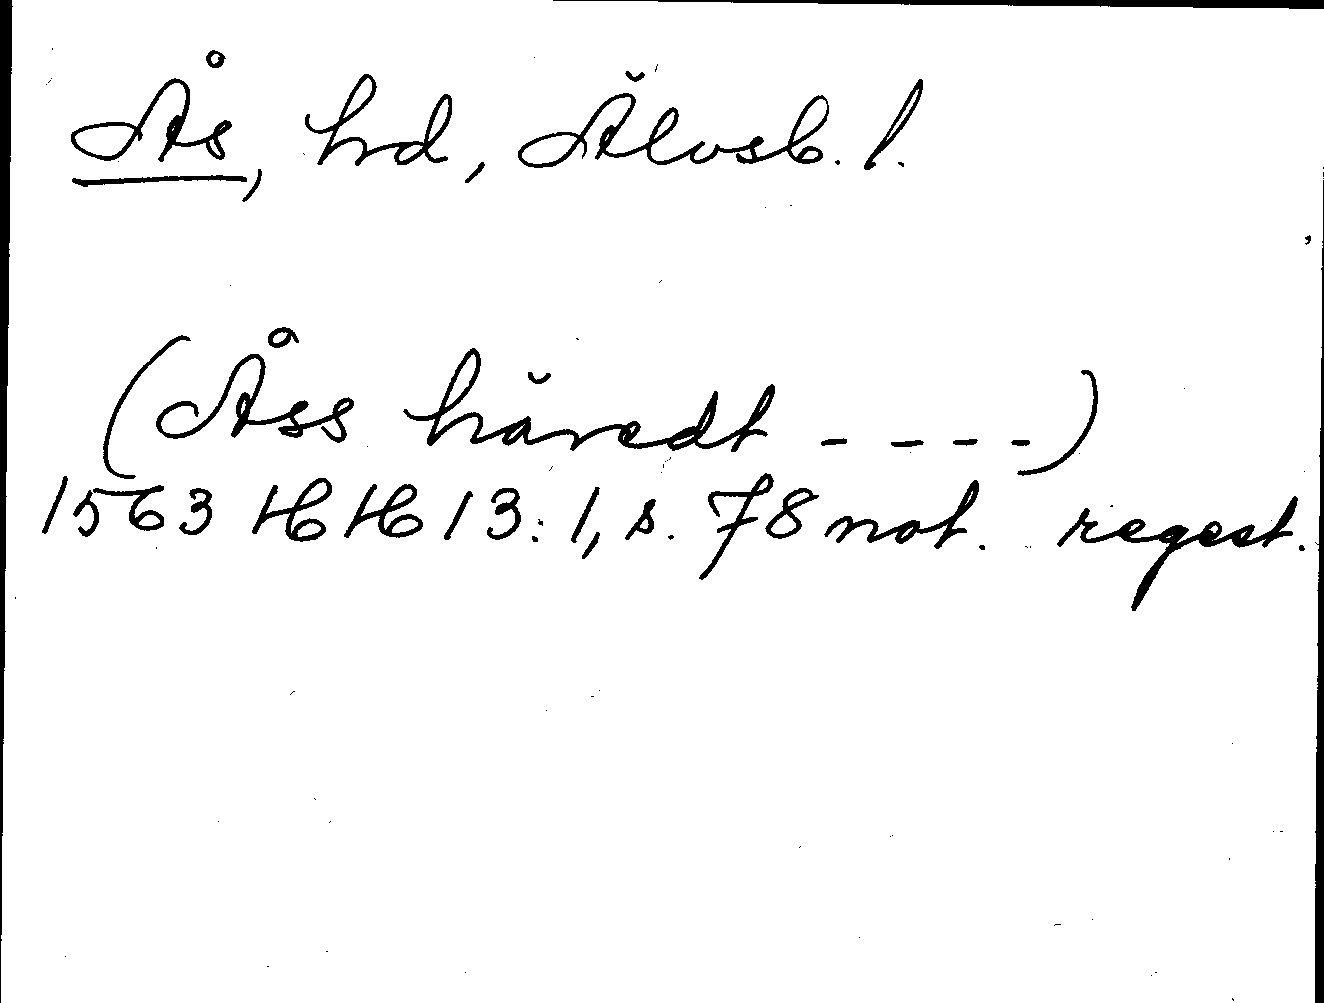 Ås, hd, Älvsb. l.
(Åss häredt - - - -)
1563 HH 13:1, s. 78 not. regest.